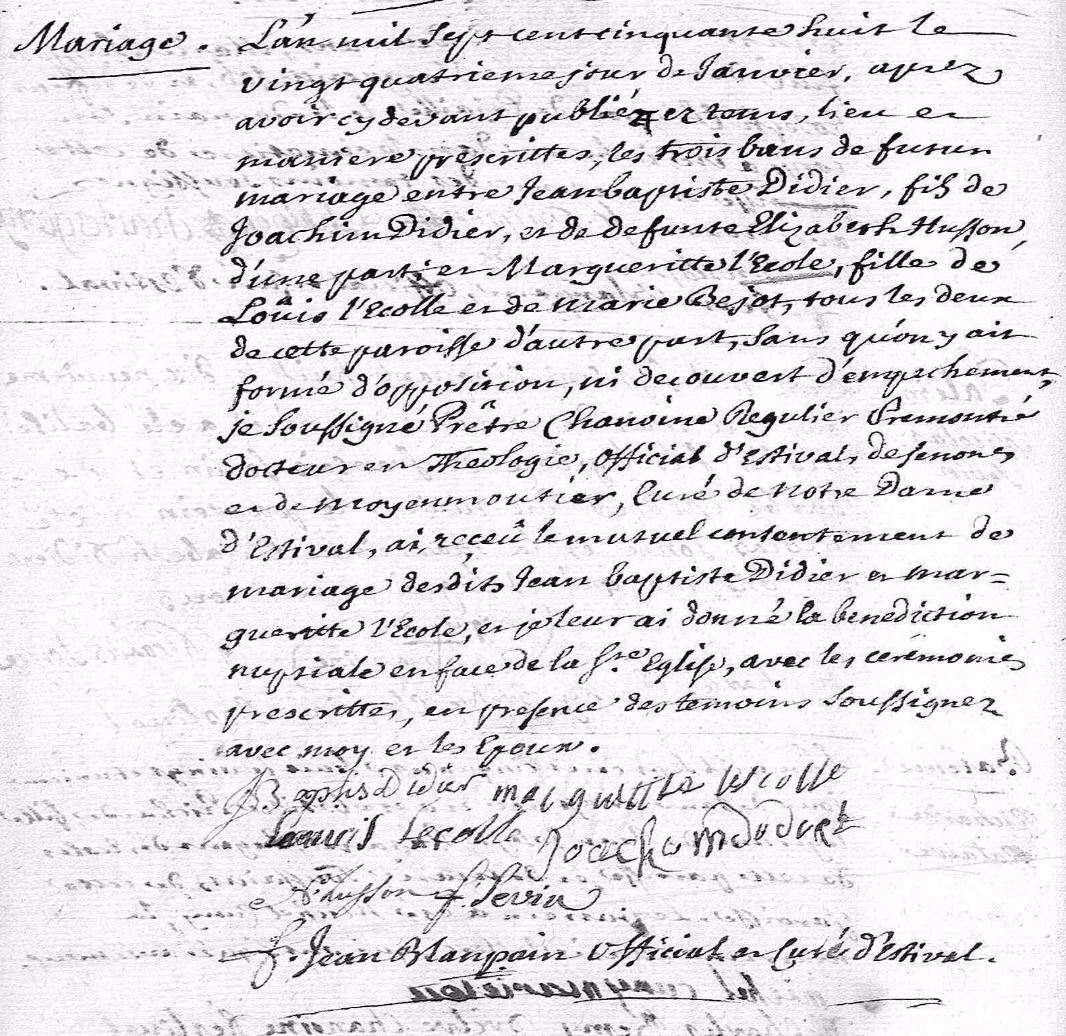 Mariage. L'an mil sept cent cinquante huit le
vingt quatrieme jour de Janvier, aprez
avoir cy devant publiéz et tems, lieu et
maniere prescrittes, les trois bans de futur
mariage entre Jean baptiste Didier, fils de
Joachim Didier, et de defunte Elizabeth Husson,
d'une part; et Margueritte l'Ecole, fille de
Loûis l'Ecolle et de Marie Bejot, tous les deux
de cette paroisse d'autre part, sans qu'on y ait
formé d'opposition, ni decouvert d'empechement,
je soussigné Prêtre Chanoine Regulier Premontré
docteur en Theologie, Official d'Estival, de senones
et de Moyenmoutier, Curé de Notre Dame
d'Estival, ai receû le mutuel consentement de
mariage desdits Jean baptiste Didier et Mar=
gueritte l'Ecole, et je leur ai donné la benediction
nuptiale en face de la Ste Eglise, avec les ceremonies
prescrittes, en presence des temoins soussignez
avec moy et les Epoux.
J B aptis Didier marguitte lescolle
Lecolle
husson f. Sevin
f. Jean Blanpain Official et Curé d'Estival.